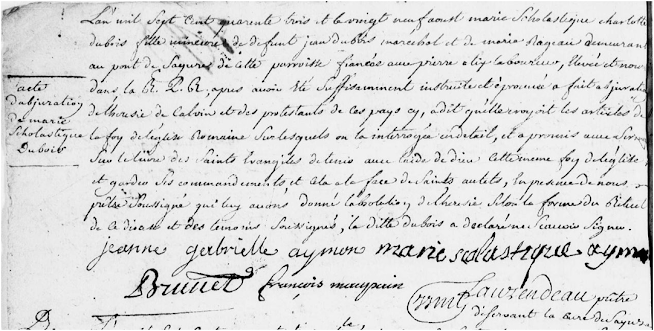 L'an mil Sept Cent quarente trois et le vingt neuf aoust marie Scholastique charlotte
dubois fille mineure de defunt jean dubois marechal et de marie Rageau demeurant
au pont de Sayures de cette parroisse fiancée avec pierre elix laboureur, Elevée et nourie
dans la R. P. R., apres avoir été Suffisamment instruite et éprouvée a fait abjuration
de lheresie de Calvin et des protestants de ces pays cy, a dit qu'elle croyoit les articles de
la foy de leglise Romaine Sur lesquels on la interrogée en detail, et a promis avec Serment
Sur le livre des Saints Evangiles de vivre avec laide de dieu Cette meme foy de leglise
et garder Ses commandements et cela a la face de Saints autels, En presence de nous
prêtre Soussigné qui luy avons donné labsolution dheresie Selon la forme du Rituel
de ce diocese et des temoins Soussignés, la ditte dubois a declaré ne Scavoir Signer.
acte
d'abjuration
De marie
Scholastique
Dubois
jeanne gabrielle aymon marie scolastique aymon
Brunet françois maupain
Laurendeau prêtre
deservant la cure de Sayures